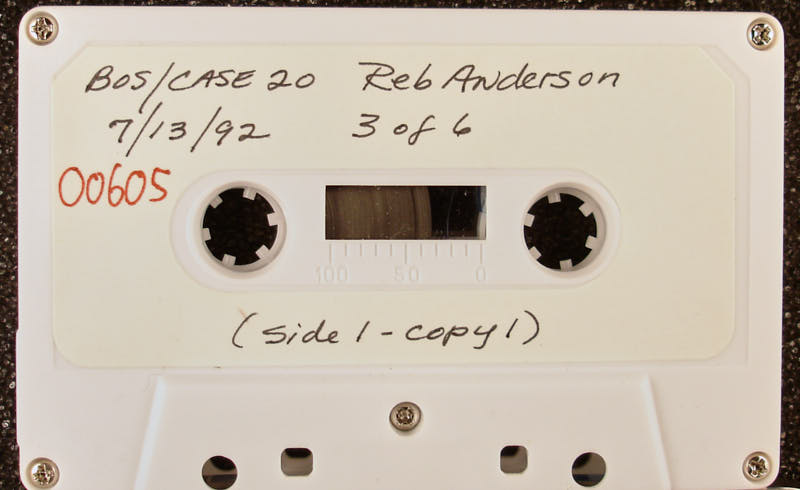 BOS/CASE 20 Reb Anderson
7/13/92 3 of 6
00605
100 50 0
(side 1 - copy 1)